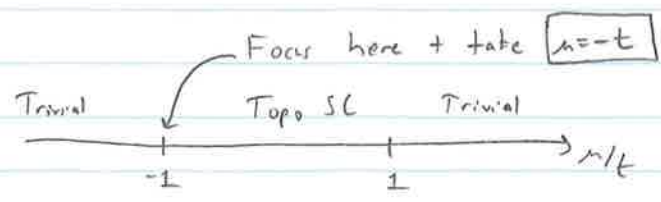 Focus here + take μ=-t
Trivial Topo SC Trivial
-1 1 μ/t